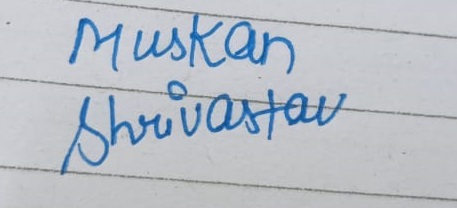 Muskan
Shrivastav